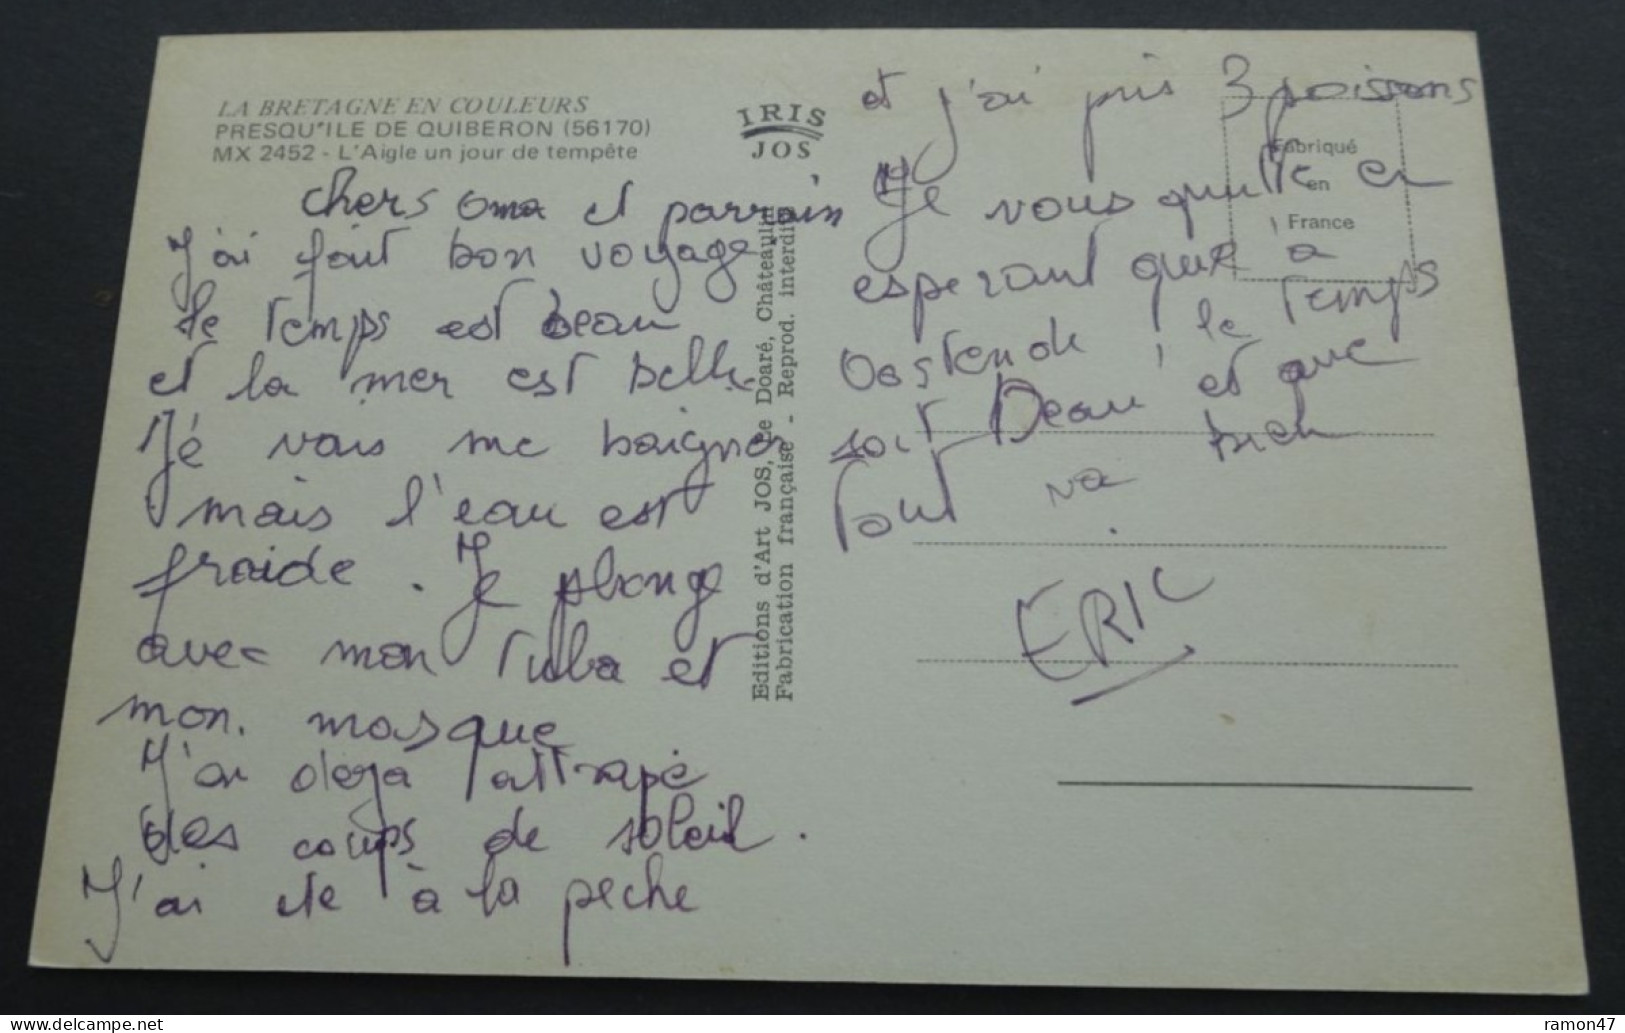 LA BRETAGNE EN COULEURS
PRESQU'ILE DE QUIBERON (56170)
MX 2452 - L'Aigle un jour de tempête
IRIS
JOS
chers oma et parrain
J'ai fait bon voyage.
le temps est beau
et la mer est belle
Jé vais me baigner
mais l'eau est
fraide. Je plonge
avec mon tuba et
mon. masque
J'ai deja attrapé
des coups de soleil.
J'ai ete à la peche
et j'ai pris 3 poissons
Je vous quitte en
esperant que à
Oostende, le temps
soit Beau et que
tout va bien
.
ERIC
Fabriqué
en
France
Editions d'Art JOS, Le Doaré, Châteaulin
Fabrication française - Reprod. interdite
ramon47